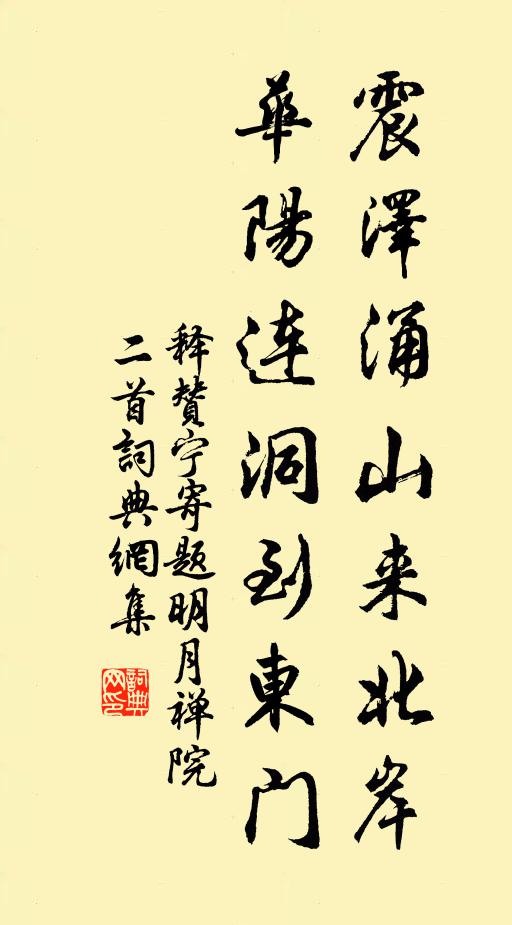 震澤涌山来北岸
華陽连洞到東门
释贊宁寄题明月禅院
二首詞典網集
詞典网印